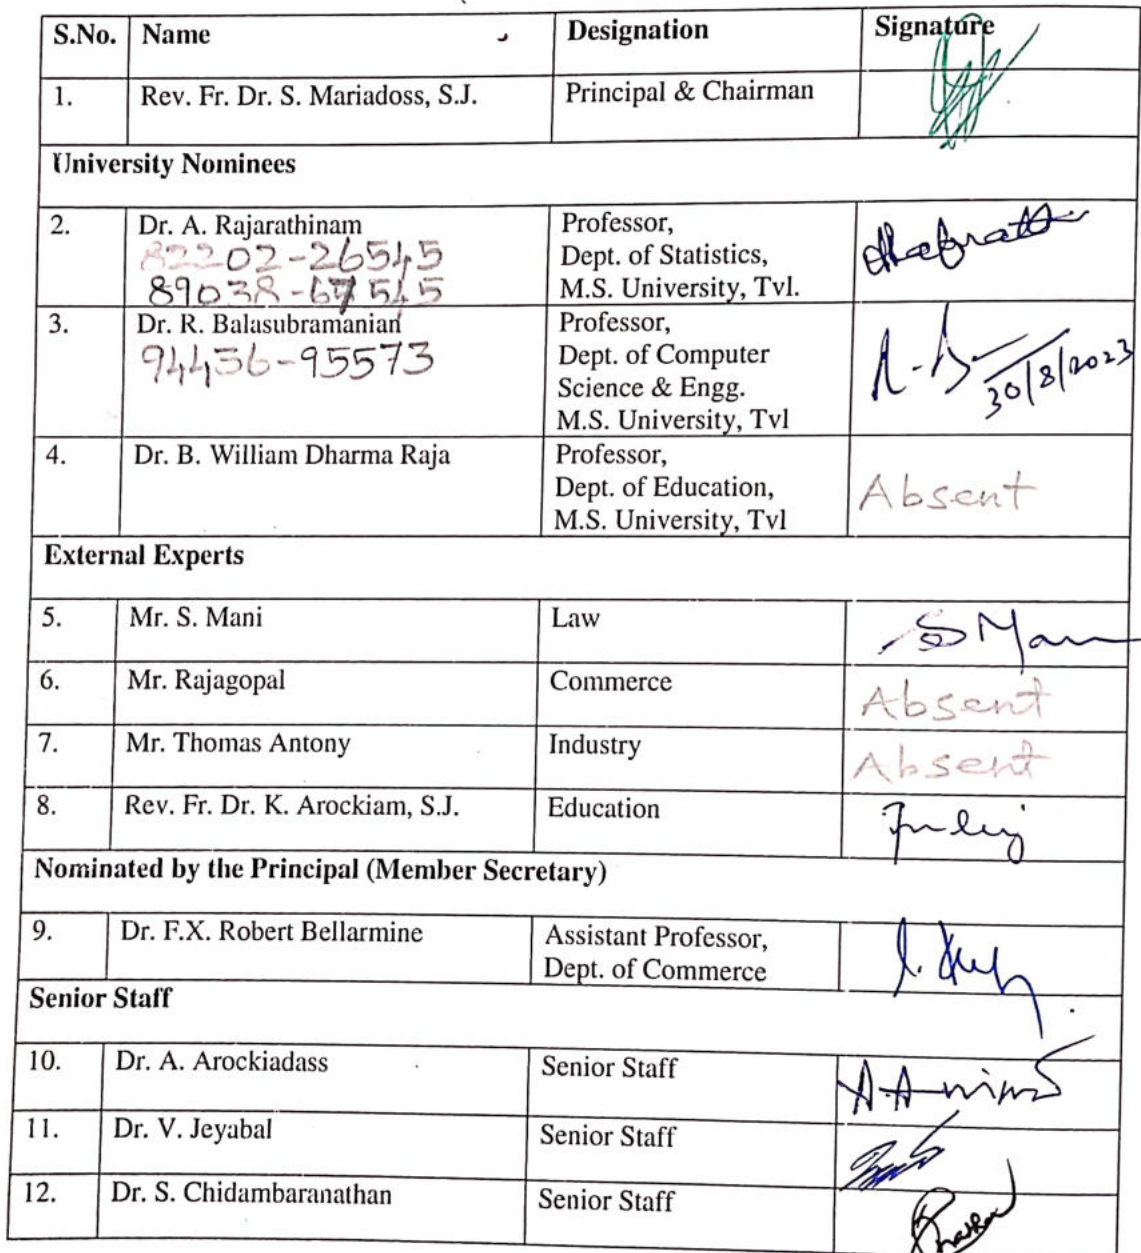 S.No. Name Designation Signature
1. Rev. Fr. Dr. S. Mariadoss, S.J. Principal & Chairman
University Nominees
2. Dr. A. Rajarathinam Professor,
82202-26545 Dept. of Statistics,
89038-67545 M.S. University, Tvl.
3. Dr. R. Balasubramanian Professor,
94436-95573 Dept. of Computer
Science & Engg.
30/8/2023
M.S. University, Tvl
4. Dr. B. William Dharma Raja Professor,
Dept. of Education, Absent
M.S. University, Tvl
External Experts
5. Mr. S. Mani Law S Man
6. Mr. Rajagopal Commerce Absent
7. Mr. Thomas Antony Industry Absent
8. Rev. Fr. Dr. K. Arockiam, S.J. Education
Nominated by the Principal (Member Secretary)
9. Dr. F.X. Robert Bellarmine Assistant Professor,
Dept. of Commerce
Senior Staff
10. Dr. A. Arockiadass Senior Staff
11. Dr. V. Jeyabal Senior Staff
12. Dr. S. Chidambaranathan Senior Staff